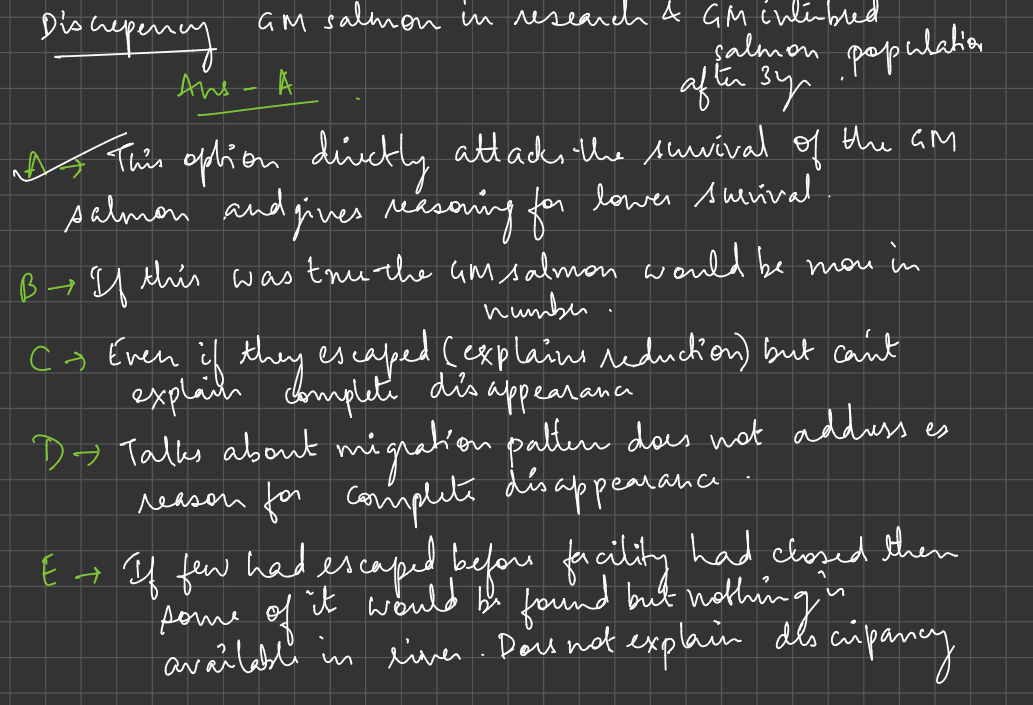 Discrepency GM salmon in research & GM intubred
salmon population
after 3yr.
Ans - A
A → This option directly attacks the survival of the GM
salmon and gives reasoning for lower survival.
B → If this was true the GM salmon would be more in
number.
C → Even if they escaped (explains reduction) but can't
explain complete disappearance
D → Talks about migration pattern does not address es
reason for complete disappearance.
E → If few had escaped before facility had closed then
some of it would be found but nothing is
available in river. Does not explain discripancy